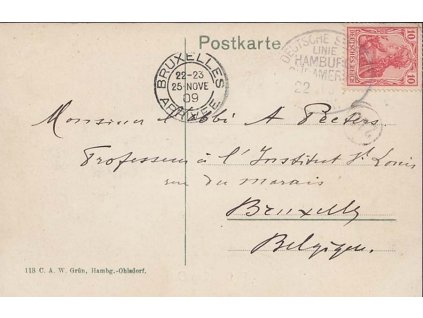 Postkarte
DEUTSCHE
LINIE
HAMBURG
22
10 DEUTSCHES REICH 10
BRUXELLES
22-23
25·NOVE
09
ARRIVEE
Monsieur l'abbé A Peeters.
Professeur à l'Institut St Louis
rue du marais
Bruxelles
Belgique.
118 C. A. W. Grün, Hambg.-Ohlsdorf.